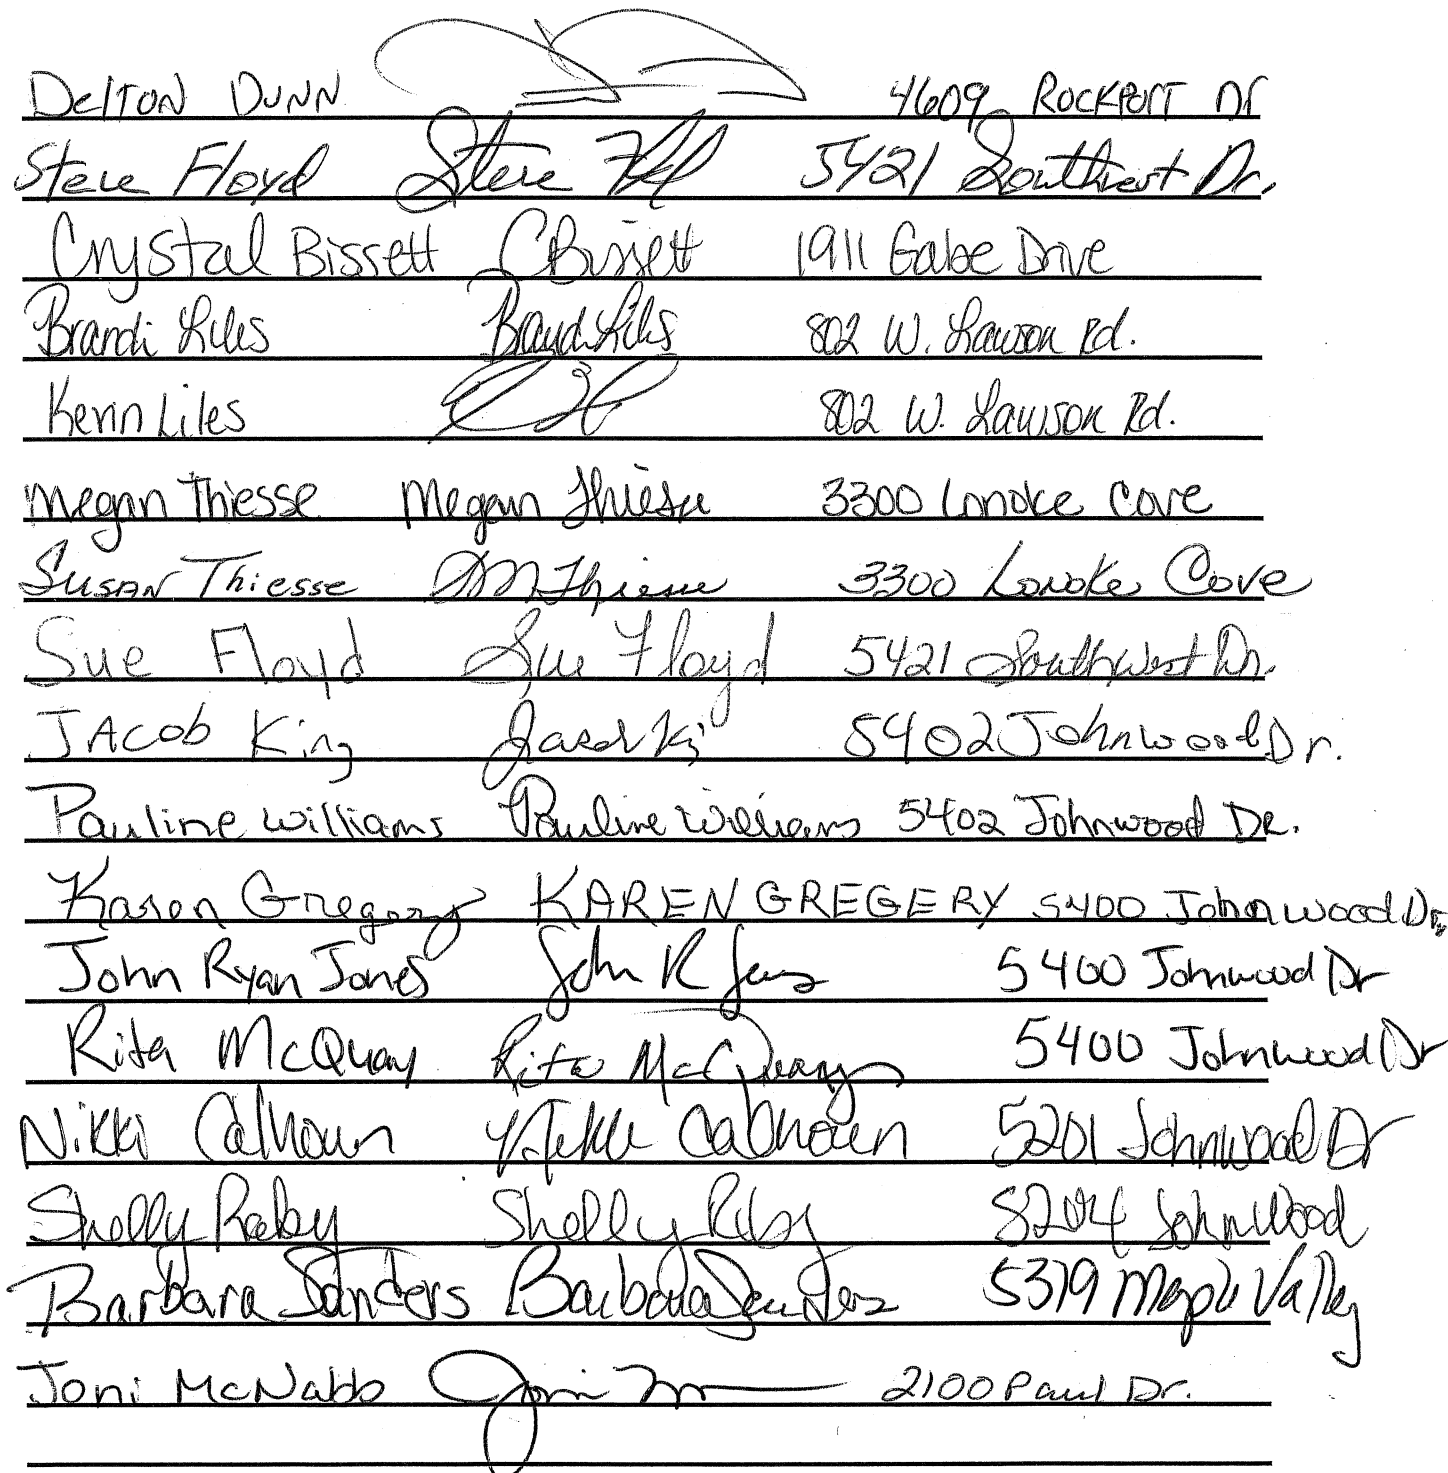 Delton Dunn 4609 Rockport Dr
Steve Floyd Steve 5421 Southwest Dr.
Crystal Bissett CBissett 1911 Gabe Drive
Brandi Liles Brandi Liles 802 W. Lawson Rd.
Kevin Liles 802 W. Lawson Rd.
Megan Thiesse Megan Thiesse 3300 Lonoke Cove
Susan Thiesse Thiesse 3300 Lonoke Cove
Sue Floyd Sue Floyd 5421 Southwest Dr.
Jacob King 5402 Johnwood Dr.
Pauline Williams Pauline Williams 5402 Johnwood Dr.
Karen Gregory KAREN GREGERY 5400 Johnwood Dr.
John Ryan Jones John R Jones 5400 Johnwood Dr
Rita McQuay Rita McQuay 5400 Johnwood Dr
Nikki Calhoun Nikki Calhoun 5201 Johnwood Dr
Shelly Raby Shelly Raby 5204 Johnwood
Barbara Sanders Barbara Sanders 5319 Maple Valley
Joni McNabb Joni 2100 Paul Dr.